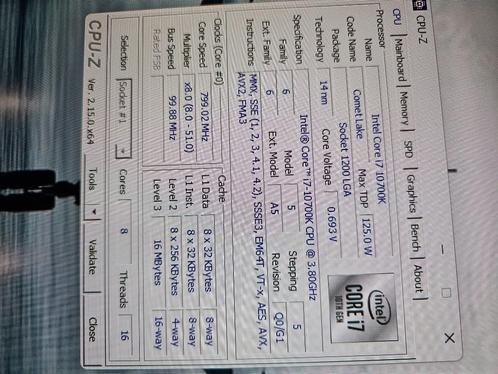 CPU-Z
CPU Mainboard Memory SPD Graphics Bench About
Processor
Name Intel Core i7 10700K
Code Name Comet Lake Max TDP 125.0 W
Package Socket 1200 LGA
Technology 14 nm Core Voltage 0.693 V
intel
CORE i7
10TH GEN
Specification Intel® Core™ i7-10700K CPU @ 3.80GHz
Family 6 Model 5 Stepping 5
Ext. Family 6 Ext. Model A5 Revision Q0/G1
Instructions MMX, SSE (1, 2, 3, 4.1, 4.2), SSSE3, EM64T, VT-x, AES, AVX,
AVX2, FMA3
Clocks (Core #0) Cache
Core Speed 799.02 MHz L1 Data 8 x 32 KBytes 8-way
Multiplier x8.0 (8.0 - 51.0) L1 Inst. 8 x 32 KBytes 8-way
Bus Speed 99.88 MHz Level 2 8 x 256 KBytes 4-way
Rated FSB Level 3 16 MBytes 16-way
Selection Socket #1 Cores 8 Threads 16
CPU-Z Ver. 2.15.0.x64 Tools Validate Close